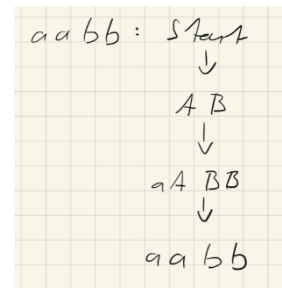 aabb: Start
↓
AB
↓
aABB
↓
aabb